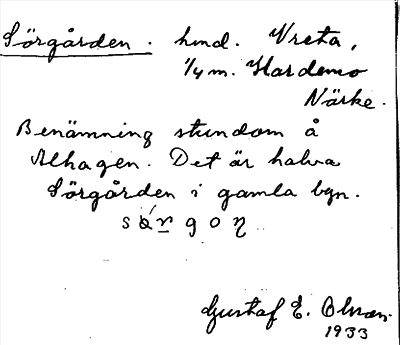 Sörgården. hmd. Vreta,
1/4 m. Hardemo
Närke.
Benämning stundom å
Alhagen. Det är halva
Sörgården i gamla byn.
Gustaf E. Olsson
1933